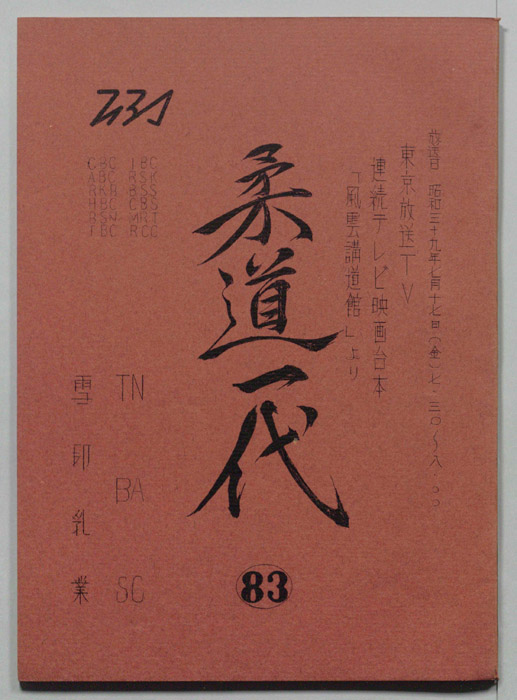 放送日 昭和三十九年七月十七日(金)七、三〇〜八、〇〇
東京放送TV
連続テレビ映画台本
「風雲講道館」より
柔道一代
83
TN BA SC
雪印乳業